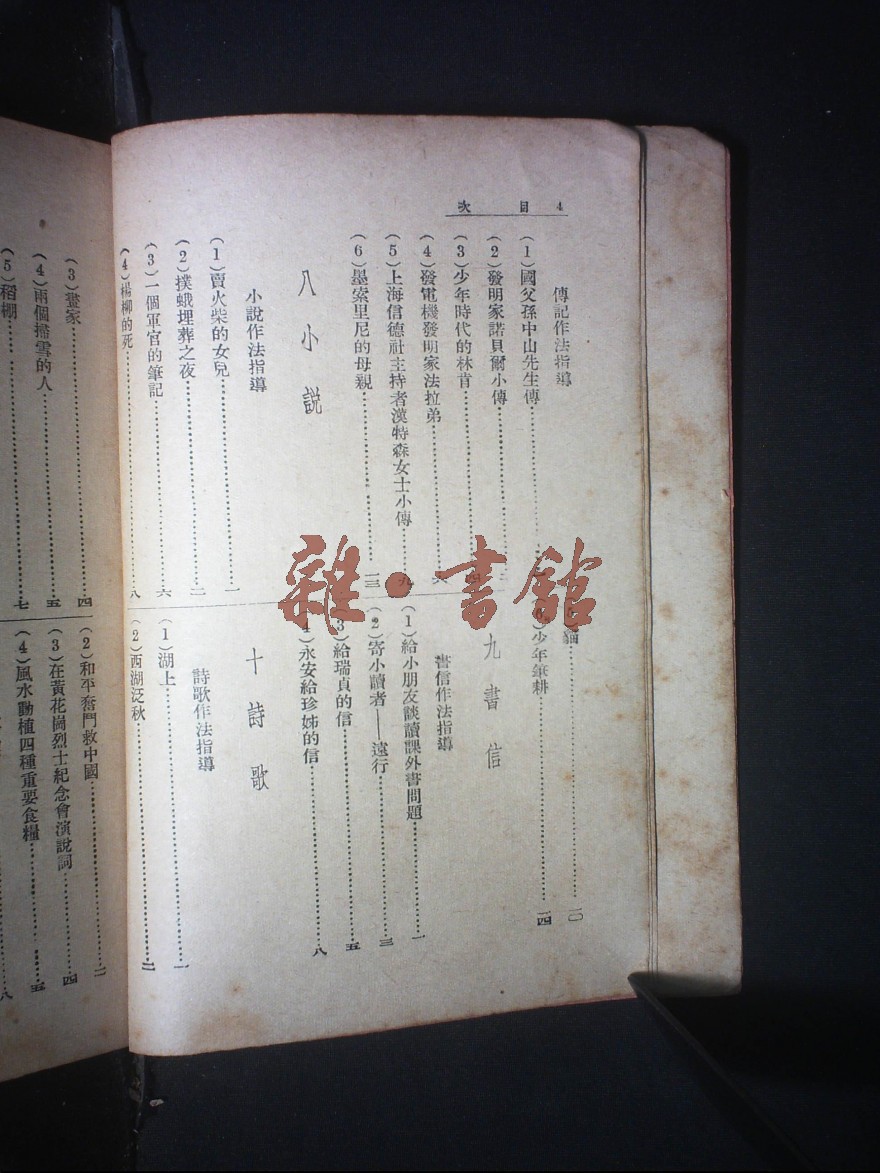 目次 4
傳記作法指導
(1)國父孫中山先生傳
(2)發明家諾貝爾小傳
(3)少年時代的林肯
(4)發電機發明家法拉弟 六
(5)上海信德社主持者漢特森女士小傳 九
(6)墨索里尼的母親 一三
八 小說
小說作法指導
(1)賣火柴的女兒 一
(2)撲蛾埋葬之夜 二
(3)一個軍官的筆記 六
(4)楊柳的死 八
貓 一〇
少年筆耕 一四
九 書信
書信作法指導
(1)給小朋友談讀課外書問題 一
(2)寄小讀者——遠行 三
(3)給瑞貞的信 五
(4)永安給珍姊的信 八
十 詩歌
詩歌作法指導
(1)湖上 一
(2)西湖泛秋 二
(3)畫家 四
(4)兩個掃雪的人 五
(5)稻棚 七
(2)和平奮鬥救中國 二
(3)在黃花崗烈士紀念會演說詞 四
(4)風水動植四種重要食糧 五
八
雜·書館